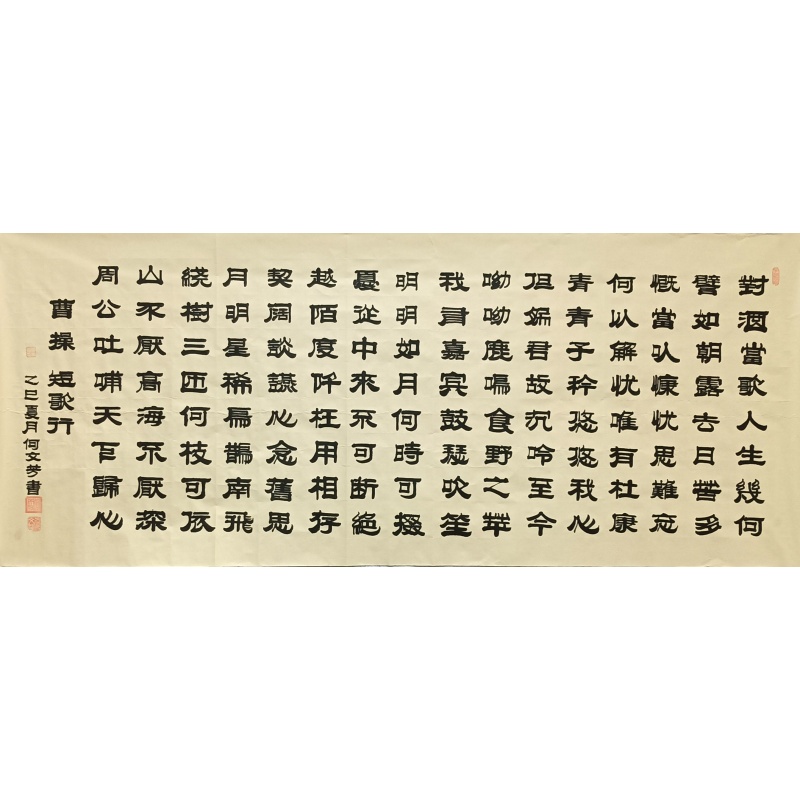 對酒當歌人生幾何
譬如朝露去日苦多
慨當以慷忧思難忘
何以解忧唯有杜康
青青子衿悠悠我心
但為君故沉吟至今
呦呦鹿鳴食野之苹
我有嘉宾鼓瑟吹笙
明明如月何時可掇
憂從中來不可断絕
越陌度阡枉用相存
契闊談讌心念舊思
月明星稀烏鵲南飛
繞樹三匝何枝可依
山不厭高海不厭深
周公吐哺天下歸心
曹操 短歌行
乙巳夏月何文芳書